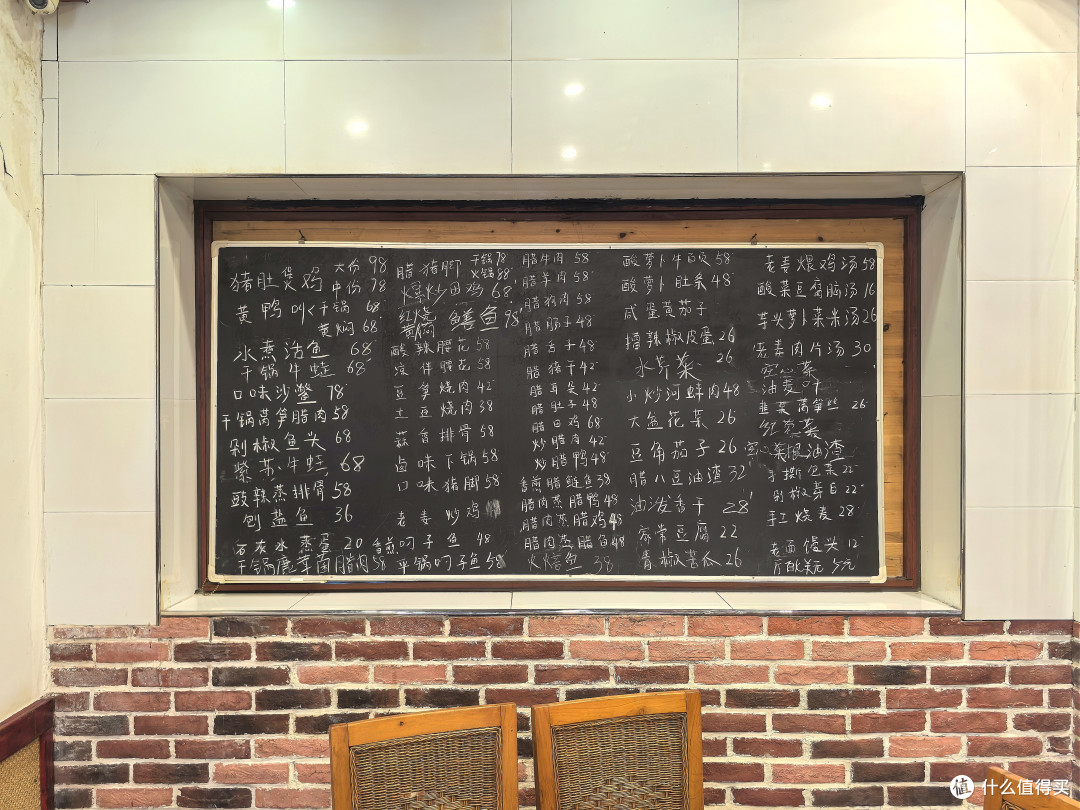 猪肚煲鸡 大份 98
中份 78
黄鸭叫 干锅 68
黄焖 68
水煮活鱼 68
干锅牛蛙 68
口味沙鳖 78
干锅莴笋腊肉 58
剁椒鱼头 68
紫苏牛蛙 68
豉辣蒸排骨 58
刨盐鱼 36
石灰水蒸蛋 20
干锅鹿茸菌腊肉 58
腊猪脚 干锅 78
火锅 88
爆炒田鸡 68
红烧
黄焖 鳝鱼 98
酸辣腊花 58
凉拌腊花 58
豆笋烧肉 42
土豆烧肉 38
蒜香排骨 58
卤味下锅 58
口味猪脚 58
老姜炒鸡
香煎叼子鱼 48
平锅叼子鱼 58
腊牛肉 58
腊羊肉 58
腊狗肉 58
腊肠子 48
腊舌子 48
腊猪干 42
腊耳朵 42
腊肚子 48
腊白鸡 68
炒腊肉 42
炒腊鸭 48
香煎腊鲢鱼 38
腊肉蒸腊鸭 48
腊肉蒸腊鸡 48
腊肉蒸腊鱼 48
火焙鱼 38
酸萝卜牛百叶 58
酸萝卜肚条 48
咸蛋黄茄子
擂辣椒皮蛋 26
水芹菜 26
小炒河蚌肉 48
大鱼花菜 26
豆角茄子 26
腊八豆油渣 32
油泼香干 28
家常豆腐 22
青椒苦瓜 26
老姜煨鸡汤 58
酸菜豆腐脑汤 16
芋头萝卜菜米汤 26
肉片汤 30
空心菜
油麦
韭菜莴笋丝 26
红苋菜
油渣
手撕包菜 22
剁椒芋 22
手工烧麦 28
老面馒头 12
5元
值 什么值得买